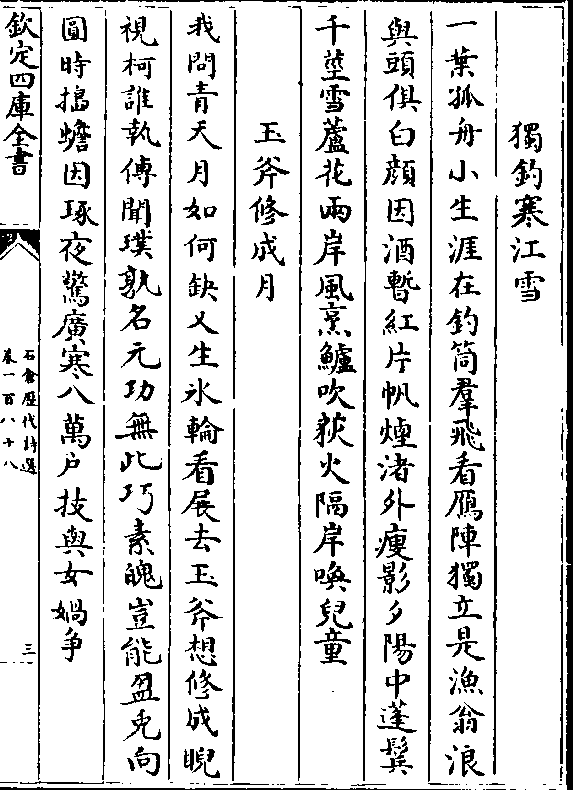 獨釣寒江雪
一葉孤舟小生涯在釣筒羣飛看鴈陣獨立是漁翁浪
與頭俱白顔因酒暫紅片帆煙渚外瘦影夕陽中蓬鬢
千莖雪蘆花兩岸風烹鱸吹荻火隔岸喚兒童
玉斧修成月
我問青天月如何缺又生氷輪看展去玉斧想修成睨
視柯誰執傳聞璞孰名元功無此巧素魄豈能盈兎向
圓時搗蟾因琢夜驚廣寒八萬户技與女媧爭
欽定四庫全書
石倉歷代詩選
卷一百八十八
三